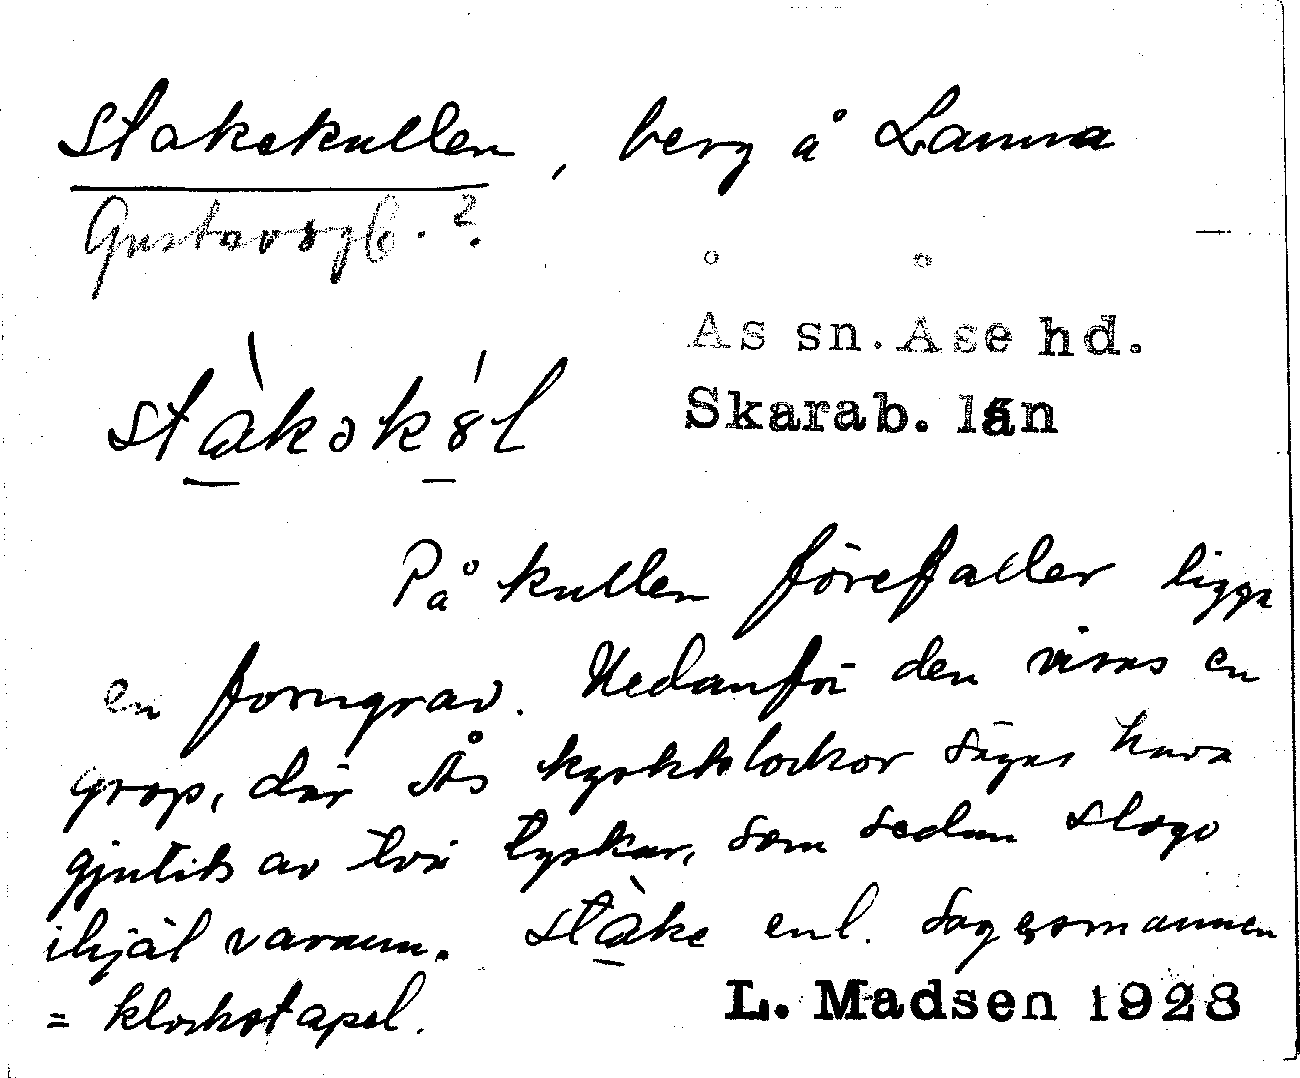 Stakekullen, berg å Lanna
Gustavsgb. ?
Ås sn. Åse hd.
stàkəkʹ8l
Skarab. län
På kullen förefaller ligga
en forngrav. Nedanför den visas en
grop, där Ås kyrkklockor sägas hava
gjutits av två tyskar, som sedan slogo
ihjäl varann. Stàke enl. sagesmannen
= klockstapel.
L. Madsen 1928